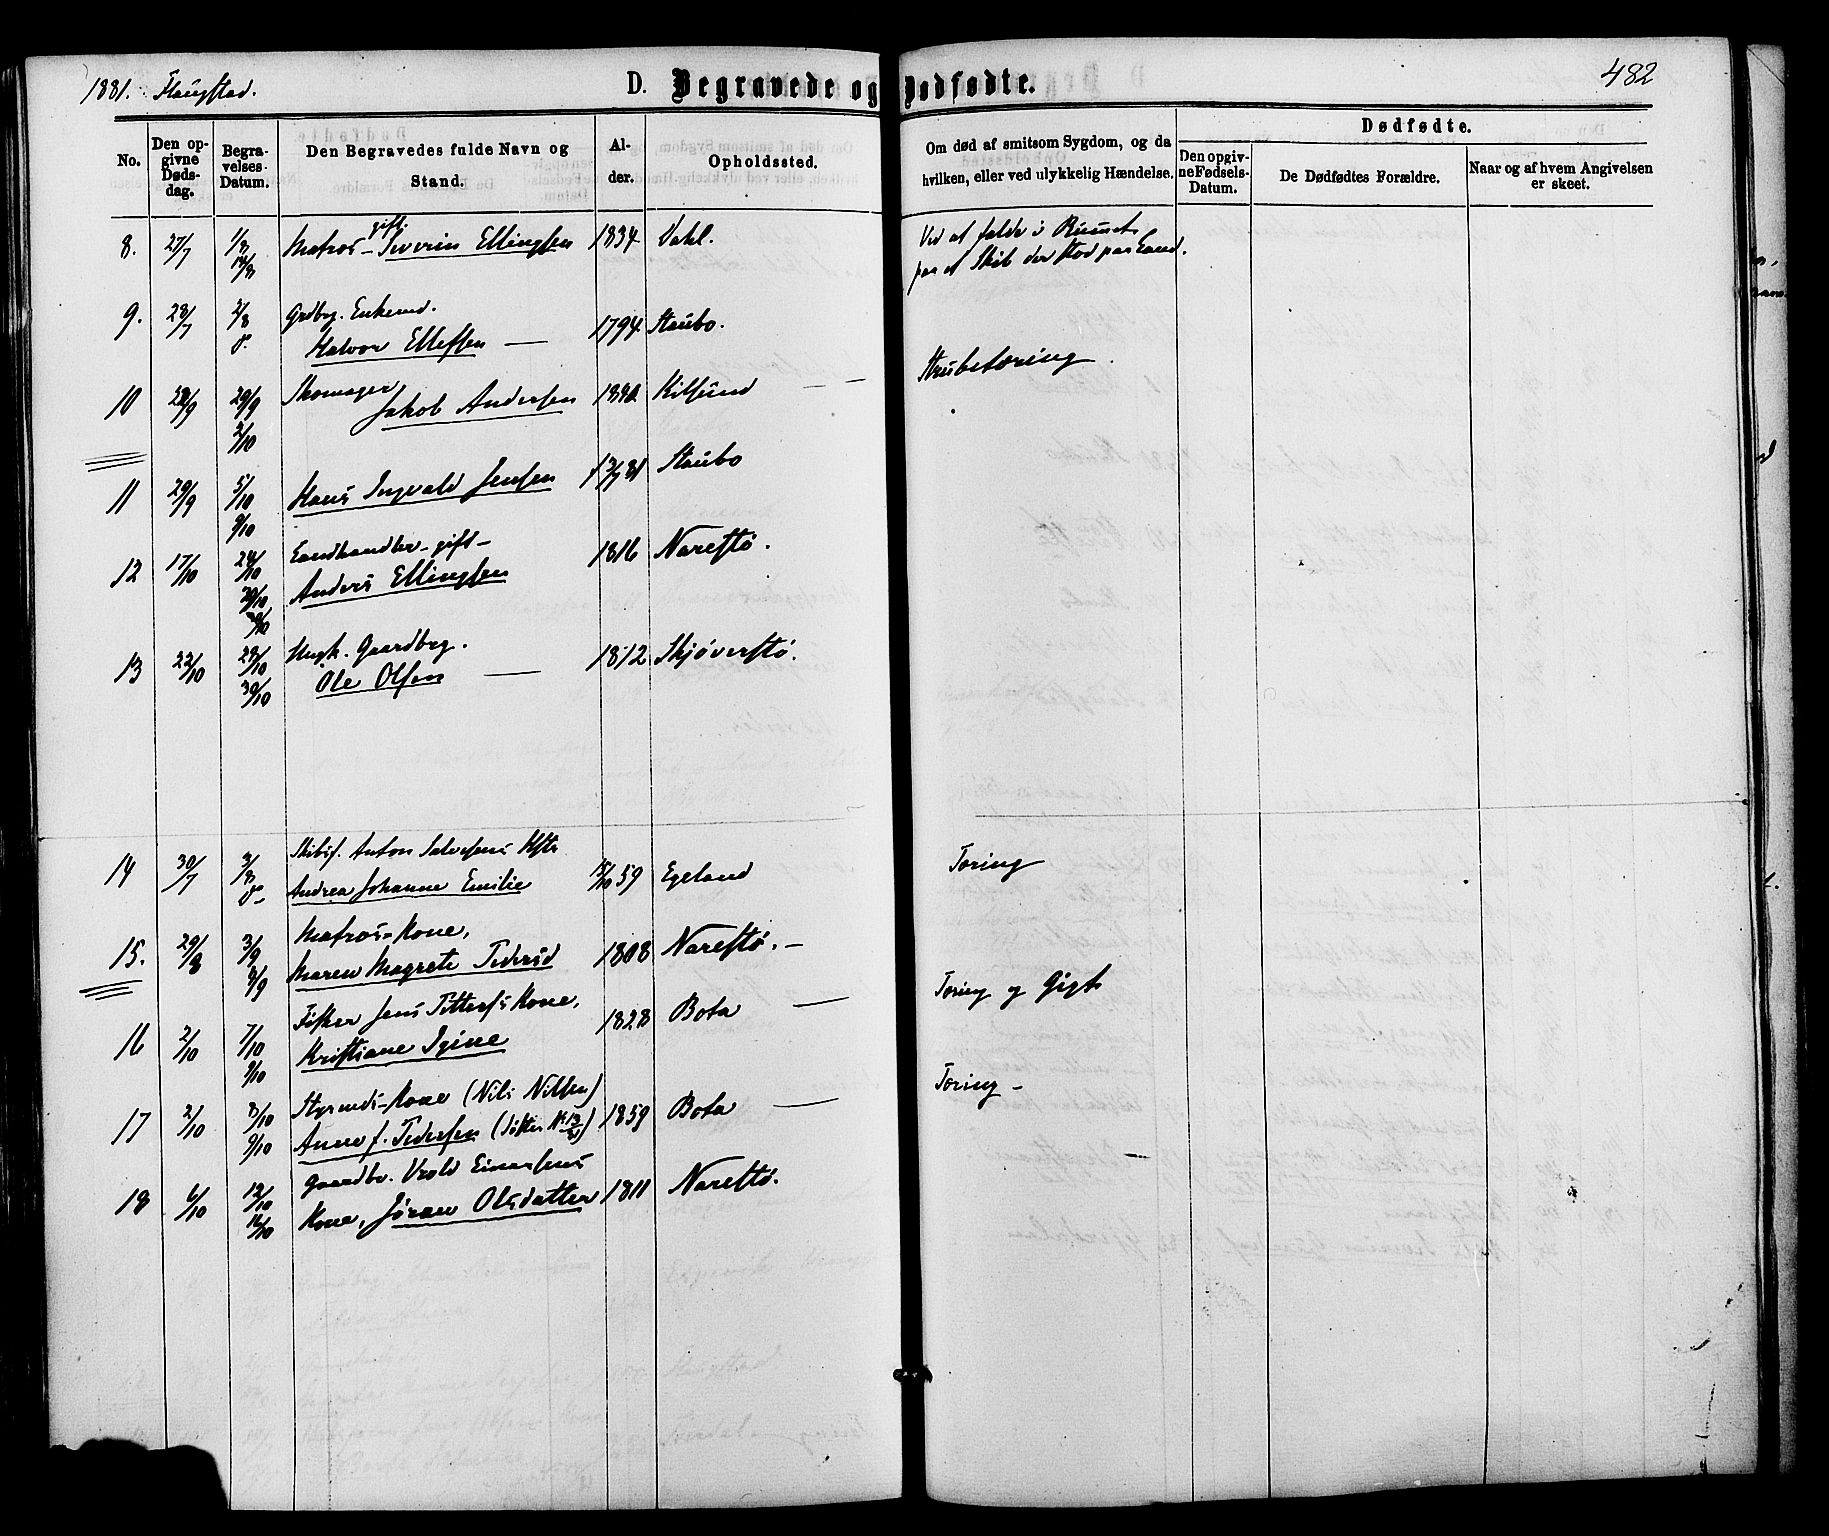 1881. Flaugstad.
D. Begravede og Dødfødte.
482
No.
Den opgivne Dødsdag.
Begravelses-Datum.
Den Begravedes fulde Navn og Stand.
Alder.
Opholdssted.
Om død af smitsom Sygdom, og da hvilken, eller ved ulykkelig Hændelse.
Dødfødte.
Den opgivne Fødsels-Datum.
De Dødfødtes Forældre.
Naar og af hvem Angivelsen er skeet.
8. 27/7 1/8 Matros- gift. Severin Ellingsen 1834 Dahl. Ved at falde i Rummet
paa et Skib der stod paa Land.
9. 28/7 2/8 Grdbrg. Enkemd.
Halvor Ellefsen — 1794 Staubo.
Strubetæring
10 29/9 2/10 Skomager
Jakob Andersen Kilsund — —
11 29/9 5/10 9/10 Hans Ingvald Jensen Staubo
12 17/10 24/10 Landhandler - gift -
Anders Ellingsen 1816 Narestø.
13 22/10 28/10 30/10 Ungk. Gaardbrg.
Ole Olsen — 1812 Skjøverstø.
14 30/7 3/8 Skibsf. Anton Salvesens Hstr
Andrea Johanne Emilie 15/10 59 Egeland Tæring
15. 29/8 3/9 Matros-Kone,
Maren Magrete Pedersd 1808 Narestø. —
Tæring og Gigt
16 2/10 7/10 9/10 Fisker Jens Kone,
Kristiane 1828 Bota —
Tæring —
17 2/10 8/10 9/10 Styrmds-Kone (Nils Nilsen)
Anne f. Pedersen 1859 Bota —
18 6/10 12/10 16/10 Gaardbr. Vrold Einersens
Kone, Jøran Olsdatter 1811 Narestø.